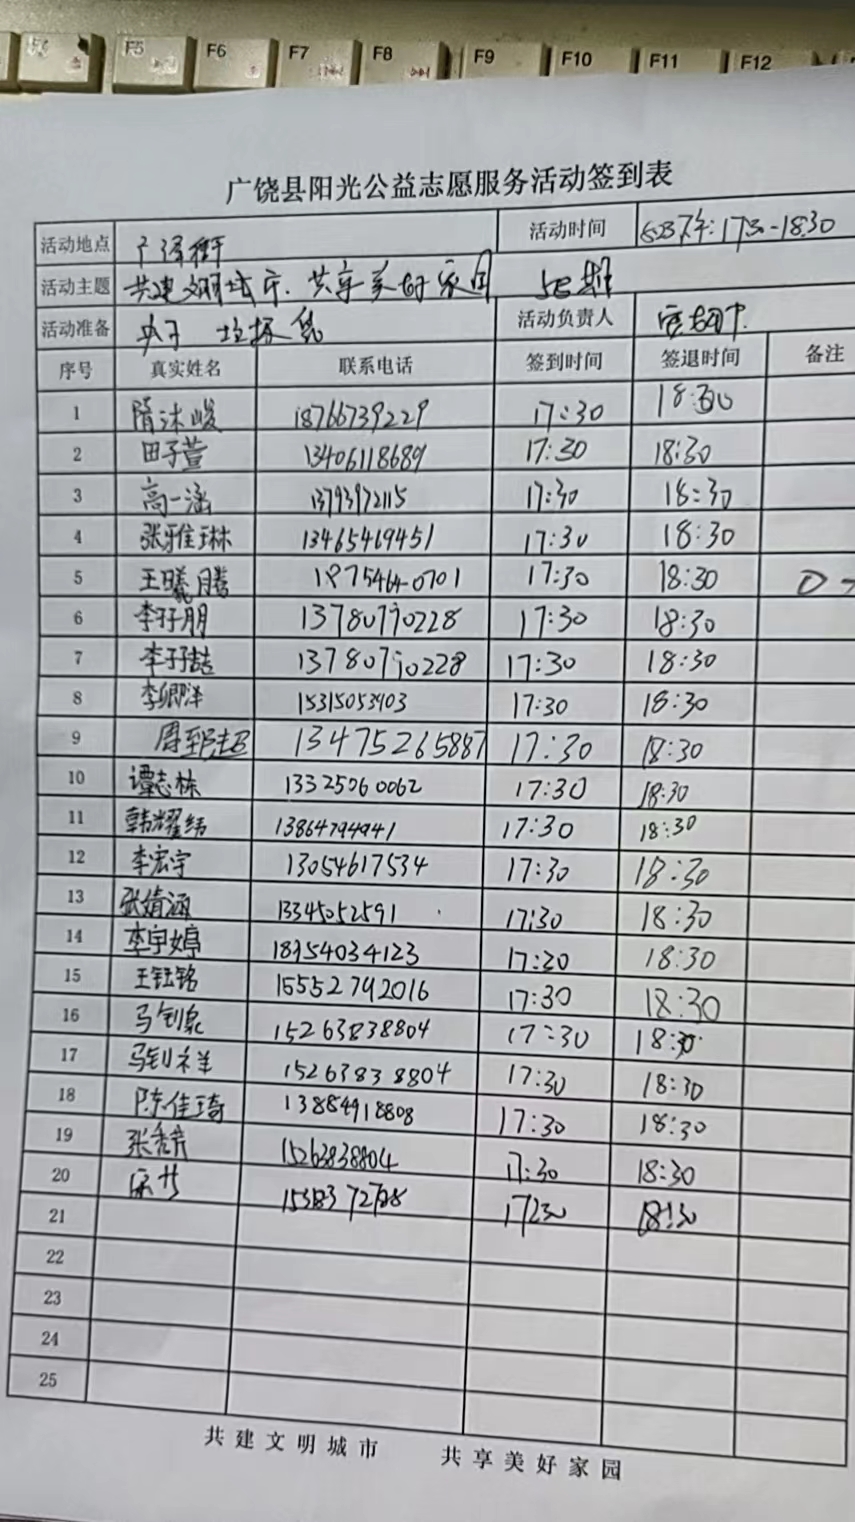 F5 F6 F7 F8 F9 F10 F11 F12
广饶县阳光公益志愿服务活动签到表
活动地点 广泽街 活动时间 下午:1730-18:30
活动主题 共建文明城市.共享美好家园 期
活动准备 夹子 垃圾袋 活动负责人
序号 真实姓名 联系电话 签到时间 签退时间 备注
1 隋沐峻 18766739229 17:30
2 田子萱 13406118689 17:30 18:30
3 高一涵 13793972115 17:30 18:30
4 张雅琳 13465469451 17:30 18:30
5 王曦腾 17:30 18:30
6 李孖朋 13780790228 17:30 18:30
7 李子喆 13780790228 17:30 18:30
8 李卿洋 15315053903 17:30 18:30
9 周郅超 13475265887 17:30 18:30
10 谭志栋 13325060062 17:30 18:30
11 韩耀纬 13864794941 17:30 18:30
12 李宏宇 13054617534 17:30 18:30
13 张婧涵 13345052591 17:30 18:30
14 李宇婷 18954034123 17:30 18:30
15 王钰铭 15552792016 17:30 18:30
16 马钊泉 15263838804 17:30 18:30
17 马钊祥 15263838804 17:30 18:30
18 陈佳琦 13884918808 17:30 18:30
19 张秀芹 15263838804 17:30 18:30
20 17:30 18:30
21
22
23
24
25
共建文明城市 共享美好家园